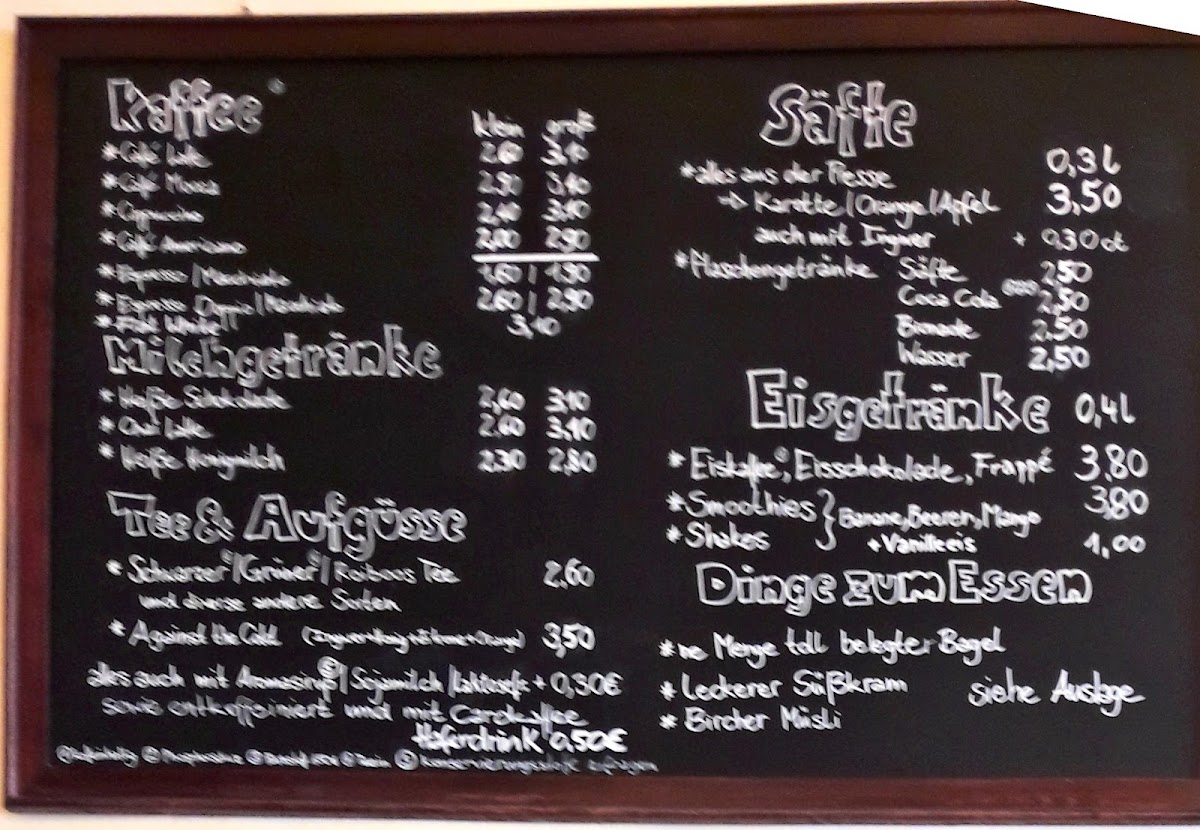 Kaffee
klein groß
* Café Latte 2,60 3,10
* Café Mocca 2,90 3,40
* Cappuccino 2,40 3,10
* Café Americano 2,00 2,90
* Espresso / Macchiato 1,60 / 1,90
* Espresso Doppio / Macchiato 2,60 / 2,90
* Flat White 3,10
Milchgetränke
* Heiße Schokolade 2,60 3,10
* Chai Latte 2,60 3,10
* Heiße Honigmilch 2,30 2,80
Tee & Aufgüsse
* Schwarzer / Grüner / Roiboos Tee 2,60
und diverse andere Sorten
* Against the Cold 3,50
alles auch mit Aromasirup / Sojamilch / laktosefr. + 0,30€
sowie entkoffeiniert und mit Carokaffee
Haferdrink 0,50€
Säfte
0,3l
* alles aus der Presse
→ Karotte / Orange / Apfel 3,50
auch mit Ingwer + 0,30 ct
* Flaschengetränke Säfte 2,50
Coca Cola 2,50
Bionade 2,50
Wasser 2,50
Eisgetränke 0,4l
* Eiskaffee, Eisschokolade, Frappé 3,80
* Smoothies } Banane, Beeren, Mango 3,80
* Shakes + Vanilleeis 1,00
Dinge zum Essen
* ne Menge toll belegter Bagel
* Leckerer Süßkram siehe Auslage
* Bircher Müsli